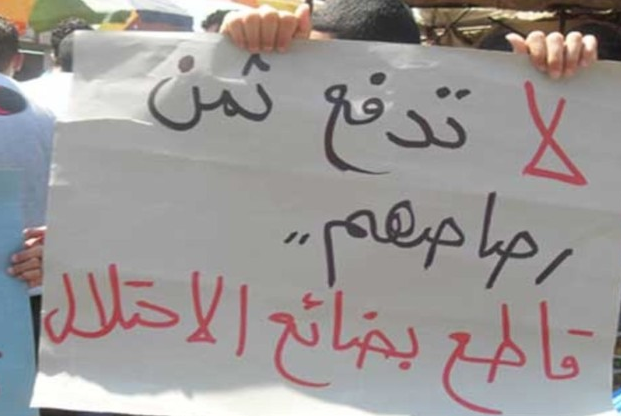 لا تدفع ثمن
رصاصهم ,,
قاطع بضائع الاحتلال